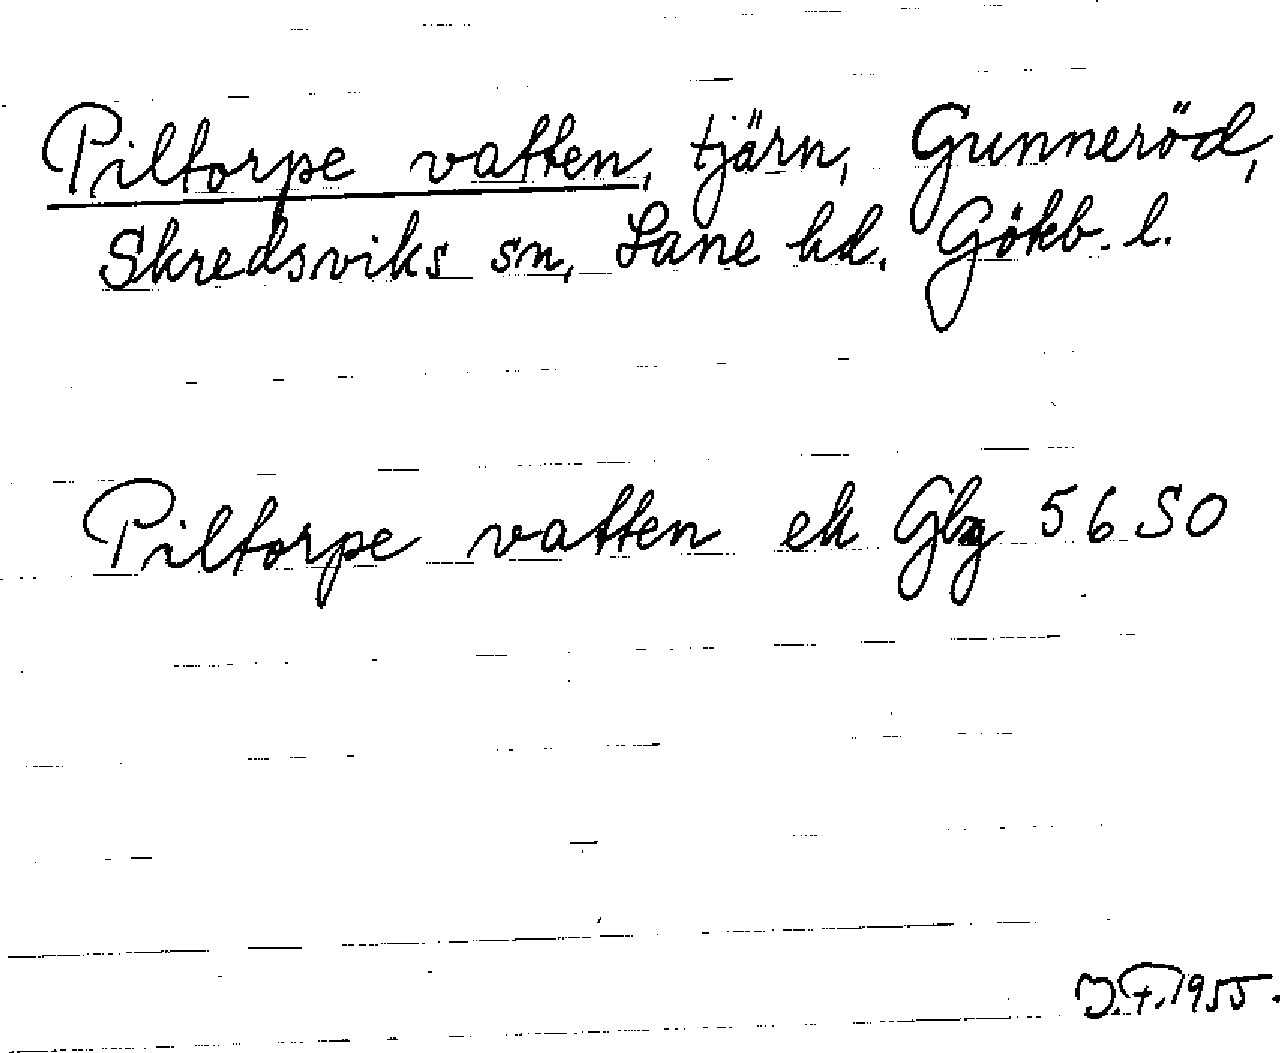 Piltorpe vatten, tjärn, Gunneröd,
Skredsviks sn, Lane hd. Gökb. l.
Piltorpe vatten ek Gbg 5650
J.F. 1955.